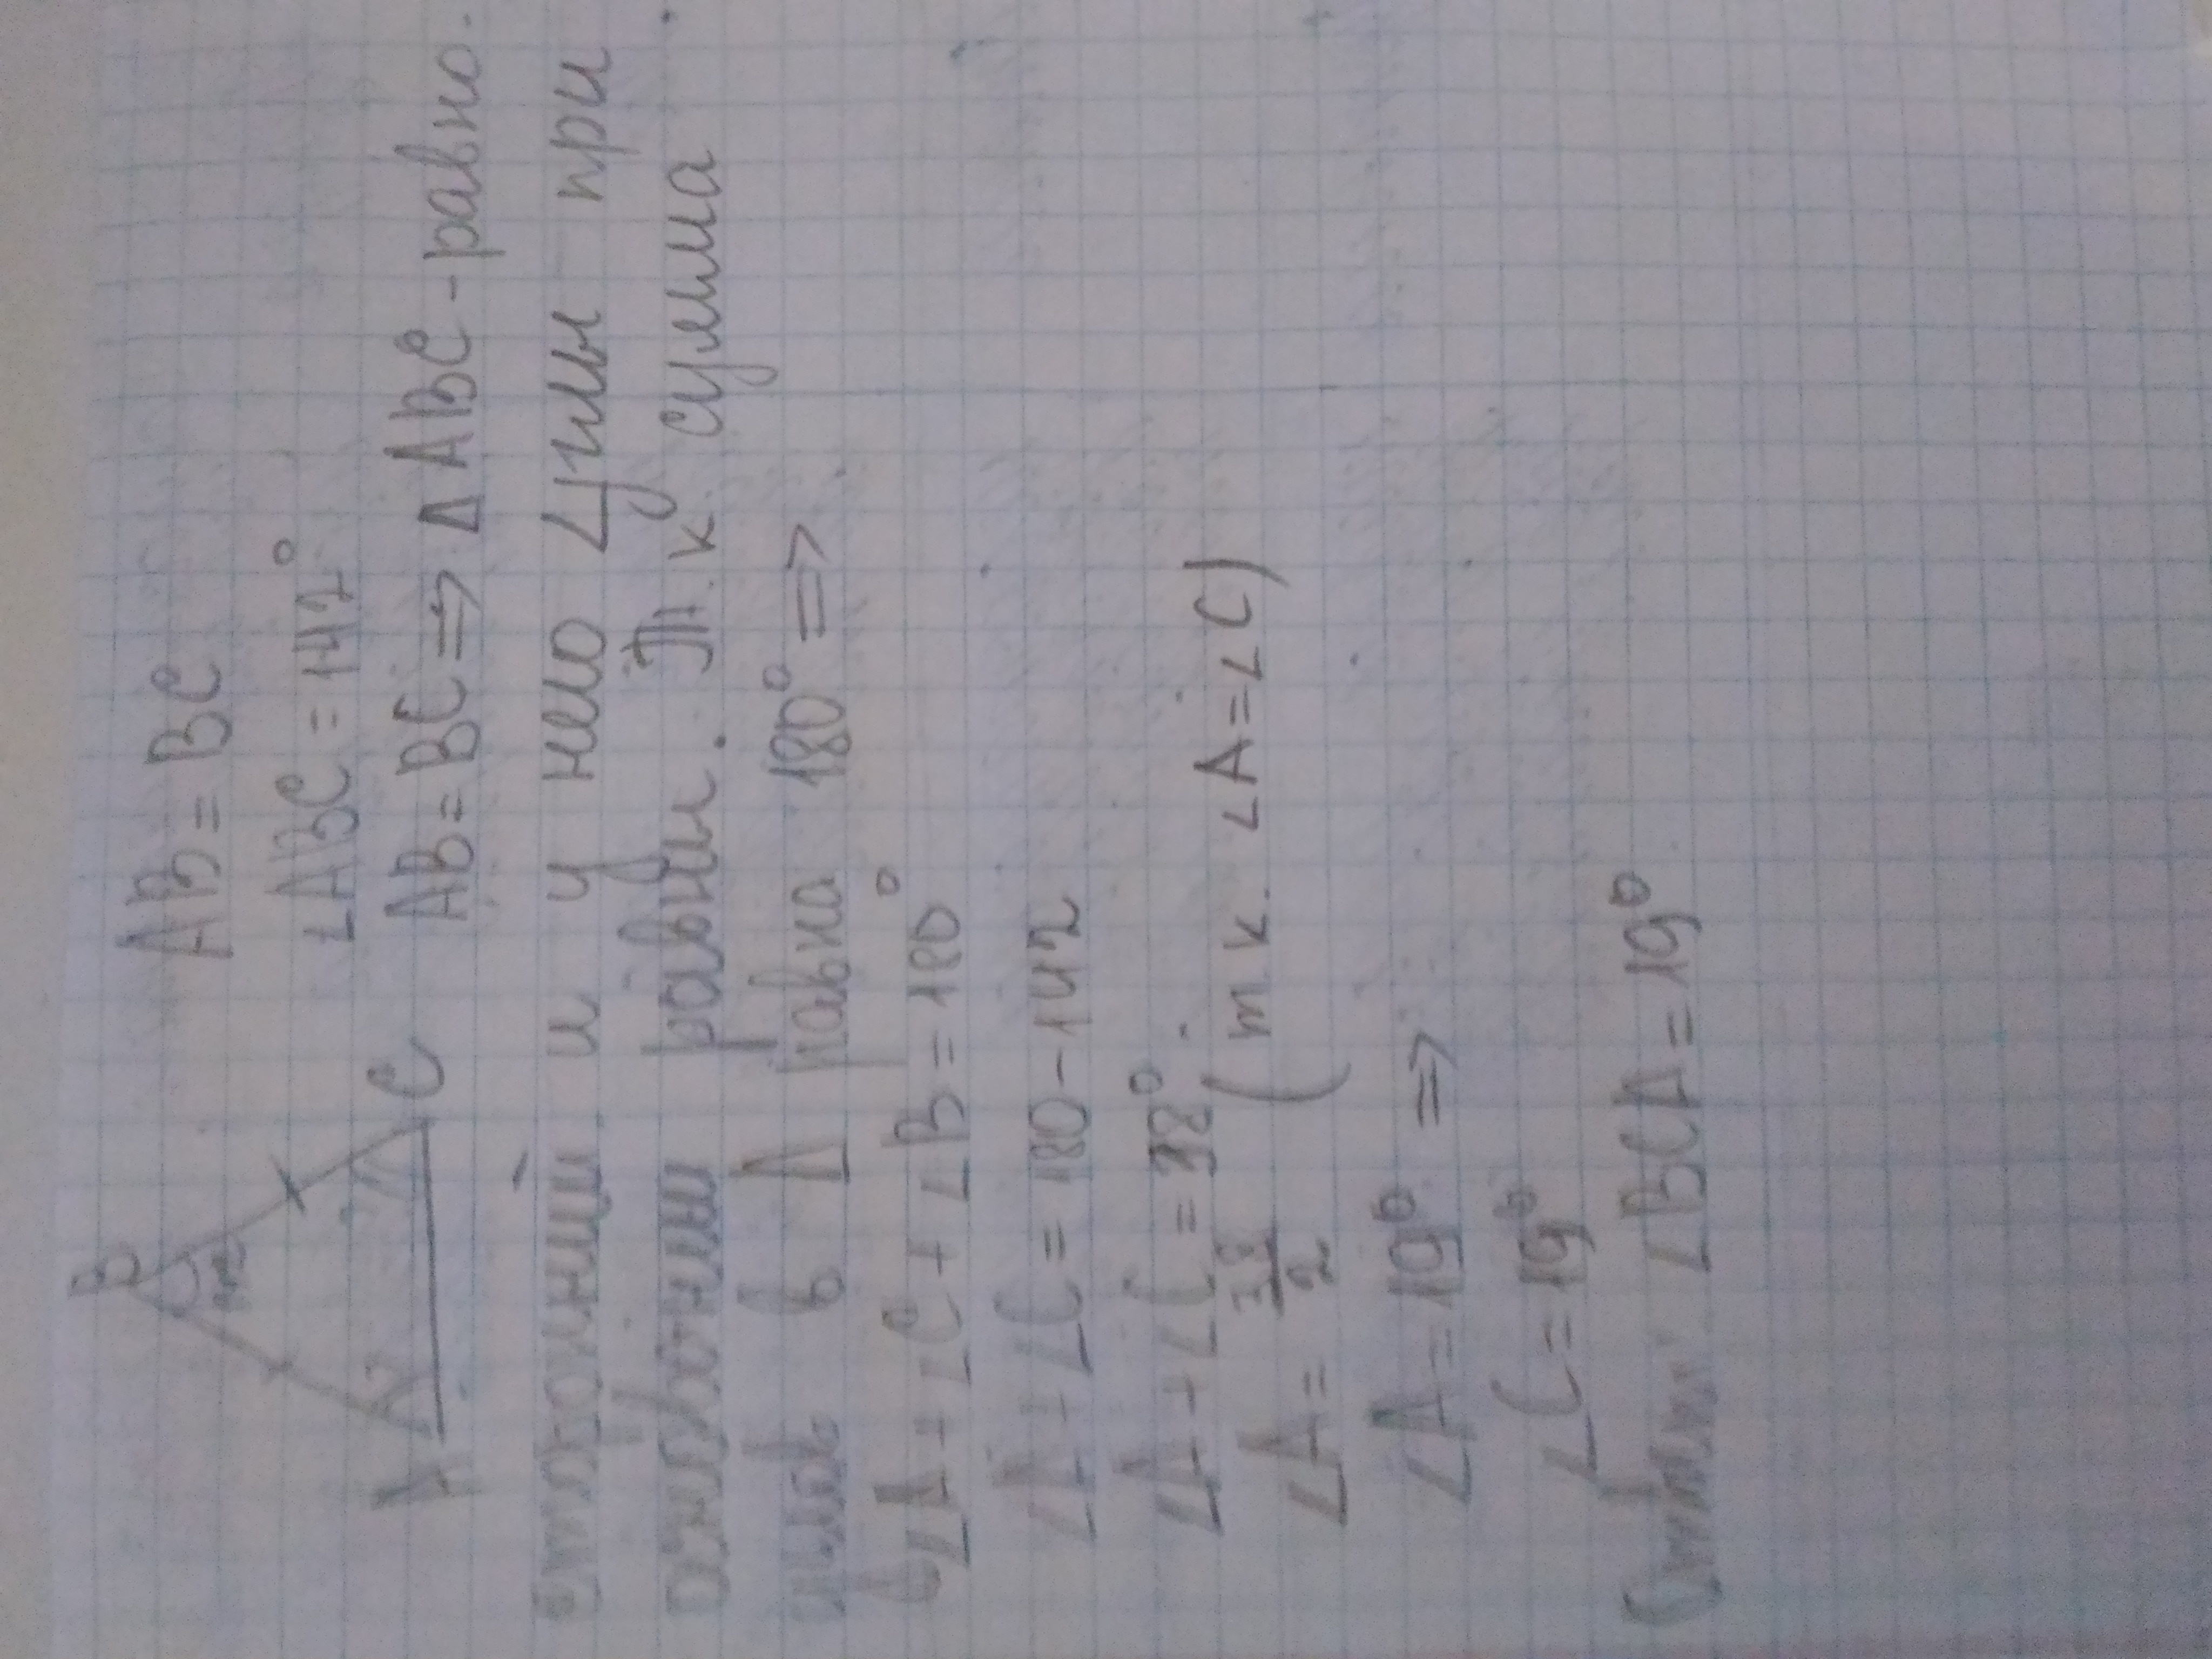 B
142
A
C
AB = BC
∠ABC = 142°
AB = BC => Δ ABC - равно.
сторонний и у него ∠углы при
основании равны. Т.к. сумма
углов в Δ равна 180° =>
∠A + ∠C + ∠B = 180°
∠A + ∠C = 180 - 142
∠A + ∠C = 38°
∠A = 38/2 (т к. ∠A = ∠C)
∠A = 19° =>
∠C = 19°
Ответ ∠BCA = 19°